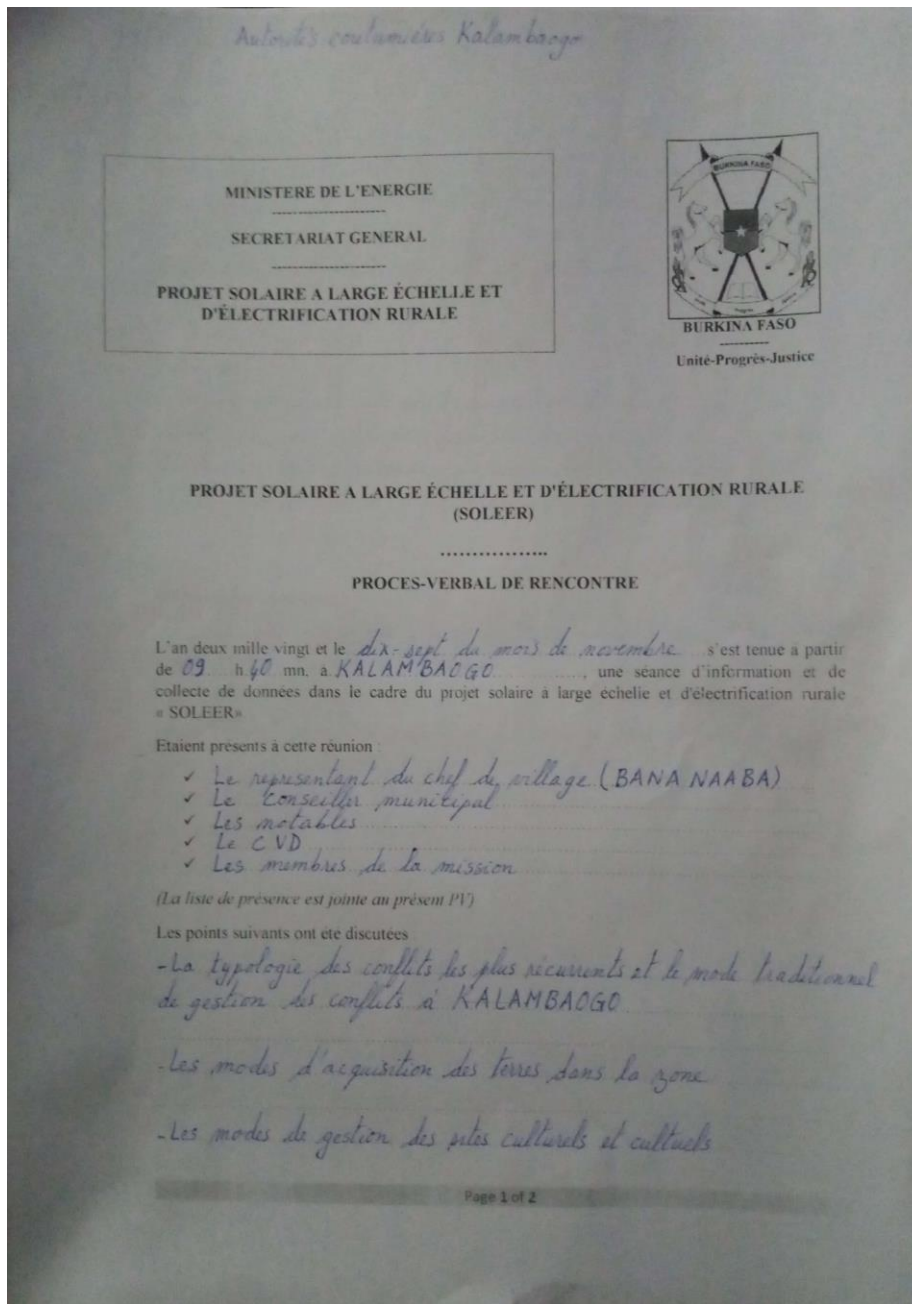 Autorités coutumières Kalambaogo
MINISTERE DE L'ENERGIE
----------------------
SECRETARIAT GENERAL
----------------------
PROJET SOLAIRE A LARGE ÉCHELLE ET
D'ÉLECTRIFICATION RURALE
BURKINA FASO
BURKINA FASO
----------
Unité-Progrès-Justice
PROJET SOLAIRE A LARGE ÉCHELLE ET D'ÉLECTRIFICATION RURALE
(SOLEER)
……………..
PROCES-VERBAL DE RENCONTRE
L'an deux mille vingt et le dix-sept du mois de novembre s'est tenue à partir
de 09 h 40 mn, à KALAMBAOGO ............, une séance d'information et de
collecte de données dans le cadre du projet solaire à large échelle et d'électrification rurale
« SOLEER»
Etaient présents à cette réunion :
✓ Le représentant du chef de village (BANA NAABA)
✓ Le Conseiller municipal
✓ Les notables
✓ Le CVD
✓ Les membres de la mission
(La liste de présence est jointe au présent PV)
Les points suivants ont été discutées
- La typologie des conflits les plus récurrents et le mode traditionnel
de gestion des conflits à KALAMBAOGO
- Les modes d'acquisition des terres dans la zone
- Les modes de gestion des sites culturels et cultuels
Page 1 of 2